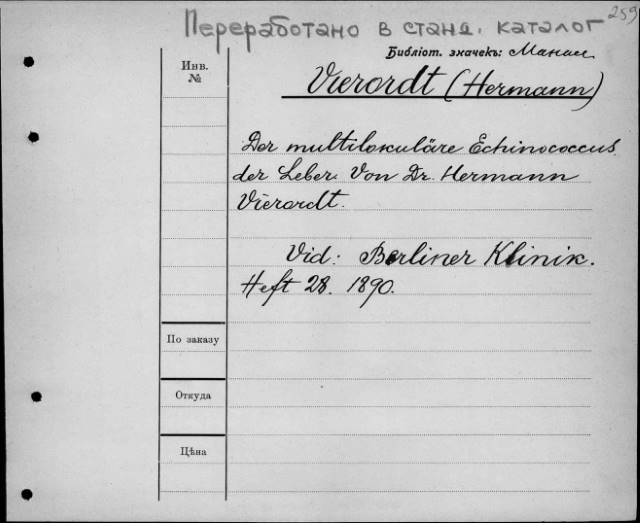 259
Переработано в станд. каталог
Библіот. значекъ:
Инв.
№
Vierordt (Hermann)
Der multilokuläre Echinococcus
der Leber. Von Dr. Hermann
Vierordt.
Vid: Berliner Klinik.
Heft 28. 1890.
По заказу
Откуда
Цѣна